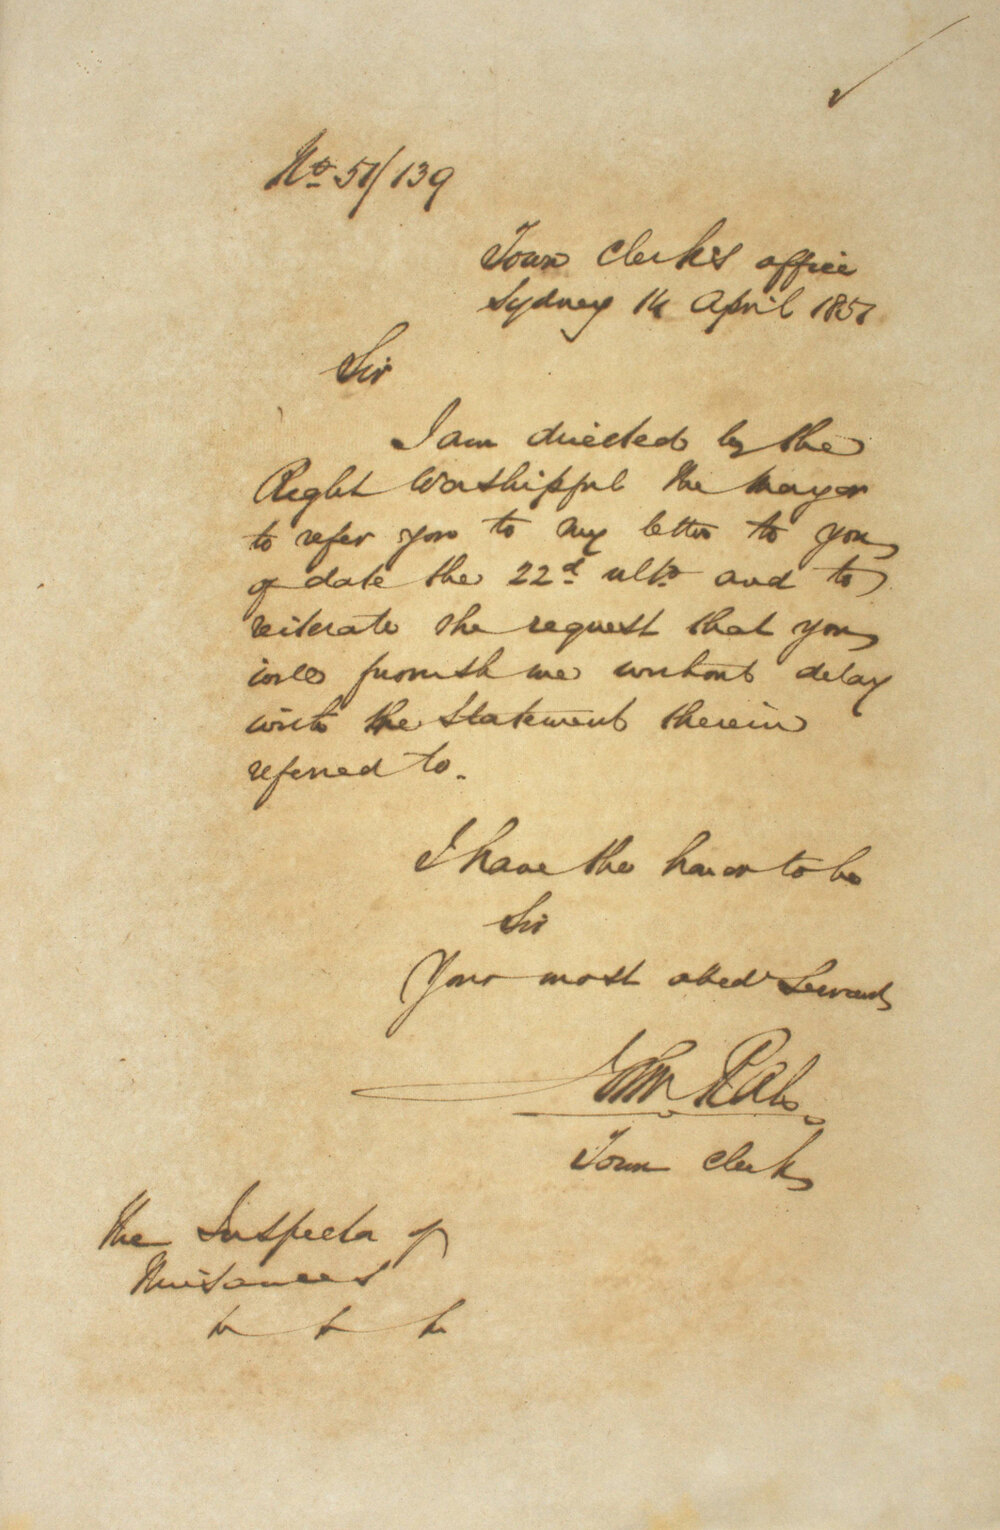 No 51/139
Town Clerk's office
Sydney 14 April 1851
Sir
I am directed by the
Right Worshipful the Mayor
to refer you to my letter to you
of date the 22d ulto. and to
reiterate the request that you
will furnish me without delay
with the Statement therein
referred to.
I have the honor to be
Sir
Your most obedt Servant
John Rae
Town Clerk
The Inspector of
Nuisances